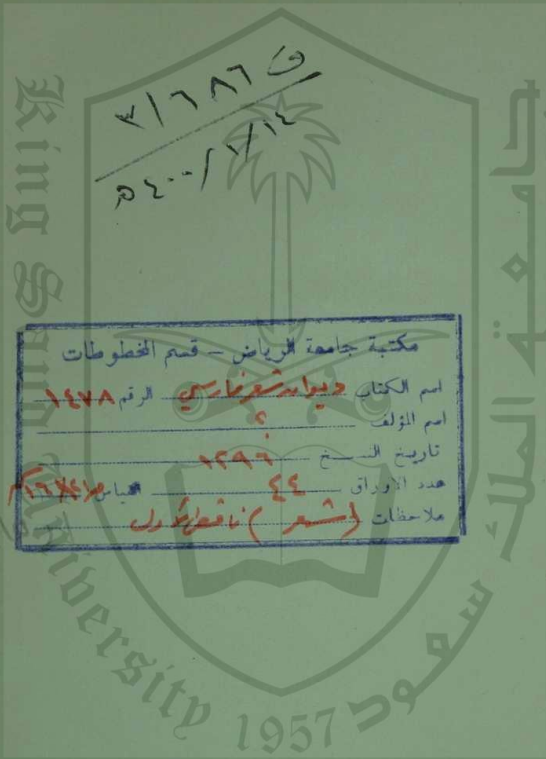 ف ٣/٦٨٦
١٤/١/٤٠٠ه
مكتبة جامعة الرياض – قسم المخطوطات
اسم الكتاب ديوان شعر فارسي الرقم ١٤٧٨
اسم المؤلف ؟
تاريخ النسخ ١٢٩٦
عدد الأوراق ٤٤ القياس
ملاحظات (شعر) ناقص الأول
King Saud University
1957
جامعة الملك سعود